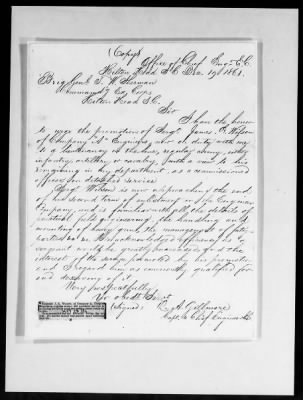 (Copy)
Office of Chief Eng. E.C.
Hilton Head, S.C. Dec. 19th 1861.
Brig. Genl. T. W. Sherman
Command'g Ex. Corps
Hilton Head S.C.
Sir
I have the honor
to urge the promotion of Sergt. James E. Wilson
of Company "A" Engineers, now on duty with me,
to a Lieutenancy in the regular army, either
infantry, artillery or cavalry, with a view to his
in my department, as a commissioned
officer on detached service.
Sergt. Wilson is now approaching the end
of his second term of enlistment in the Engineer
Company, and is familiar with all the details of
practical field engineering, the handling and
mounting of heavy guns, the management of
&c. His acknowledged efficiency as a
sergeant would be greatly increased and the
interest of the service promoted by his promotion
and I regard him as eminently qualified for
and deserving of it.
Very respectfully
Your obdt. Servt.
(Signed) Q. A. Gillmore
Capt. & Chief Engineer